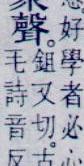 好學者必
聚聲。鉏又切。古
毛詩音反